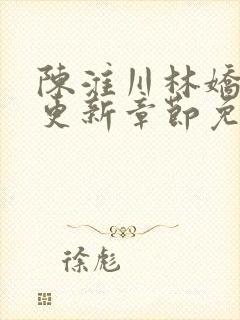 陳淮川林嬌
更新章節免
徐彪